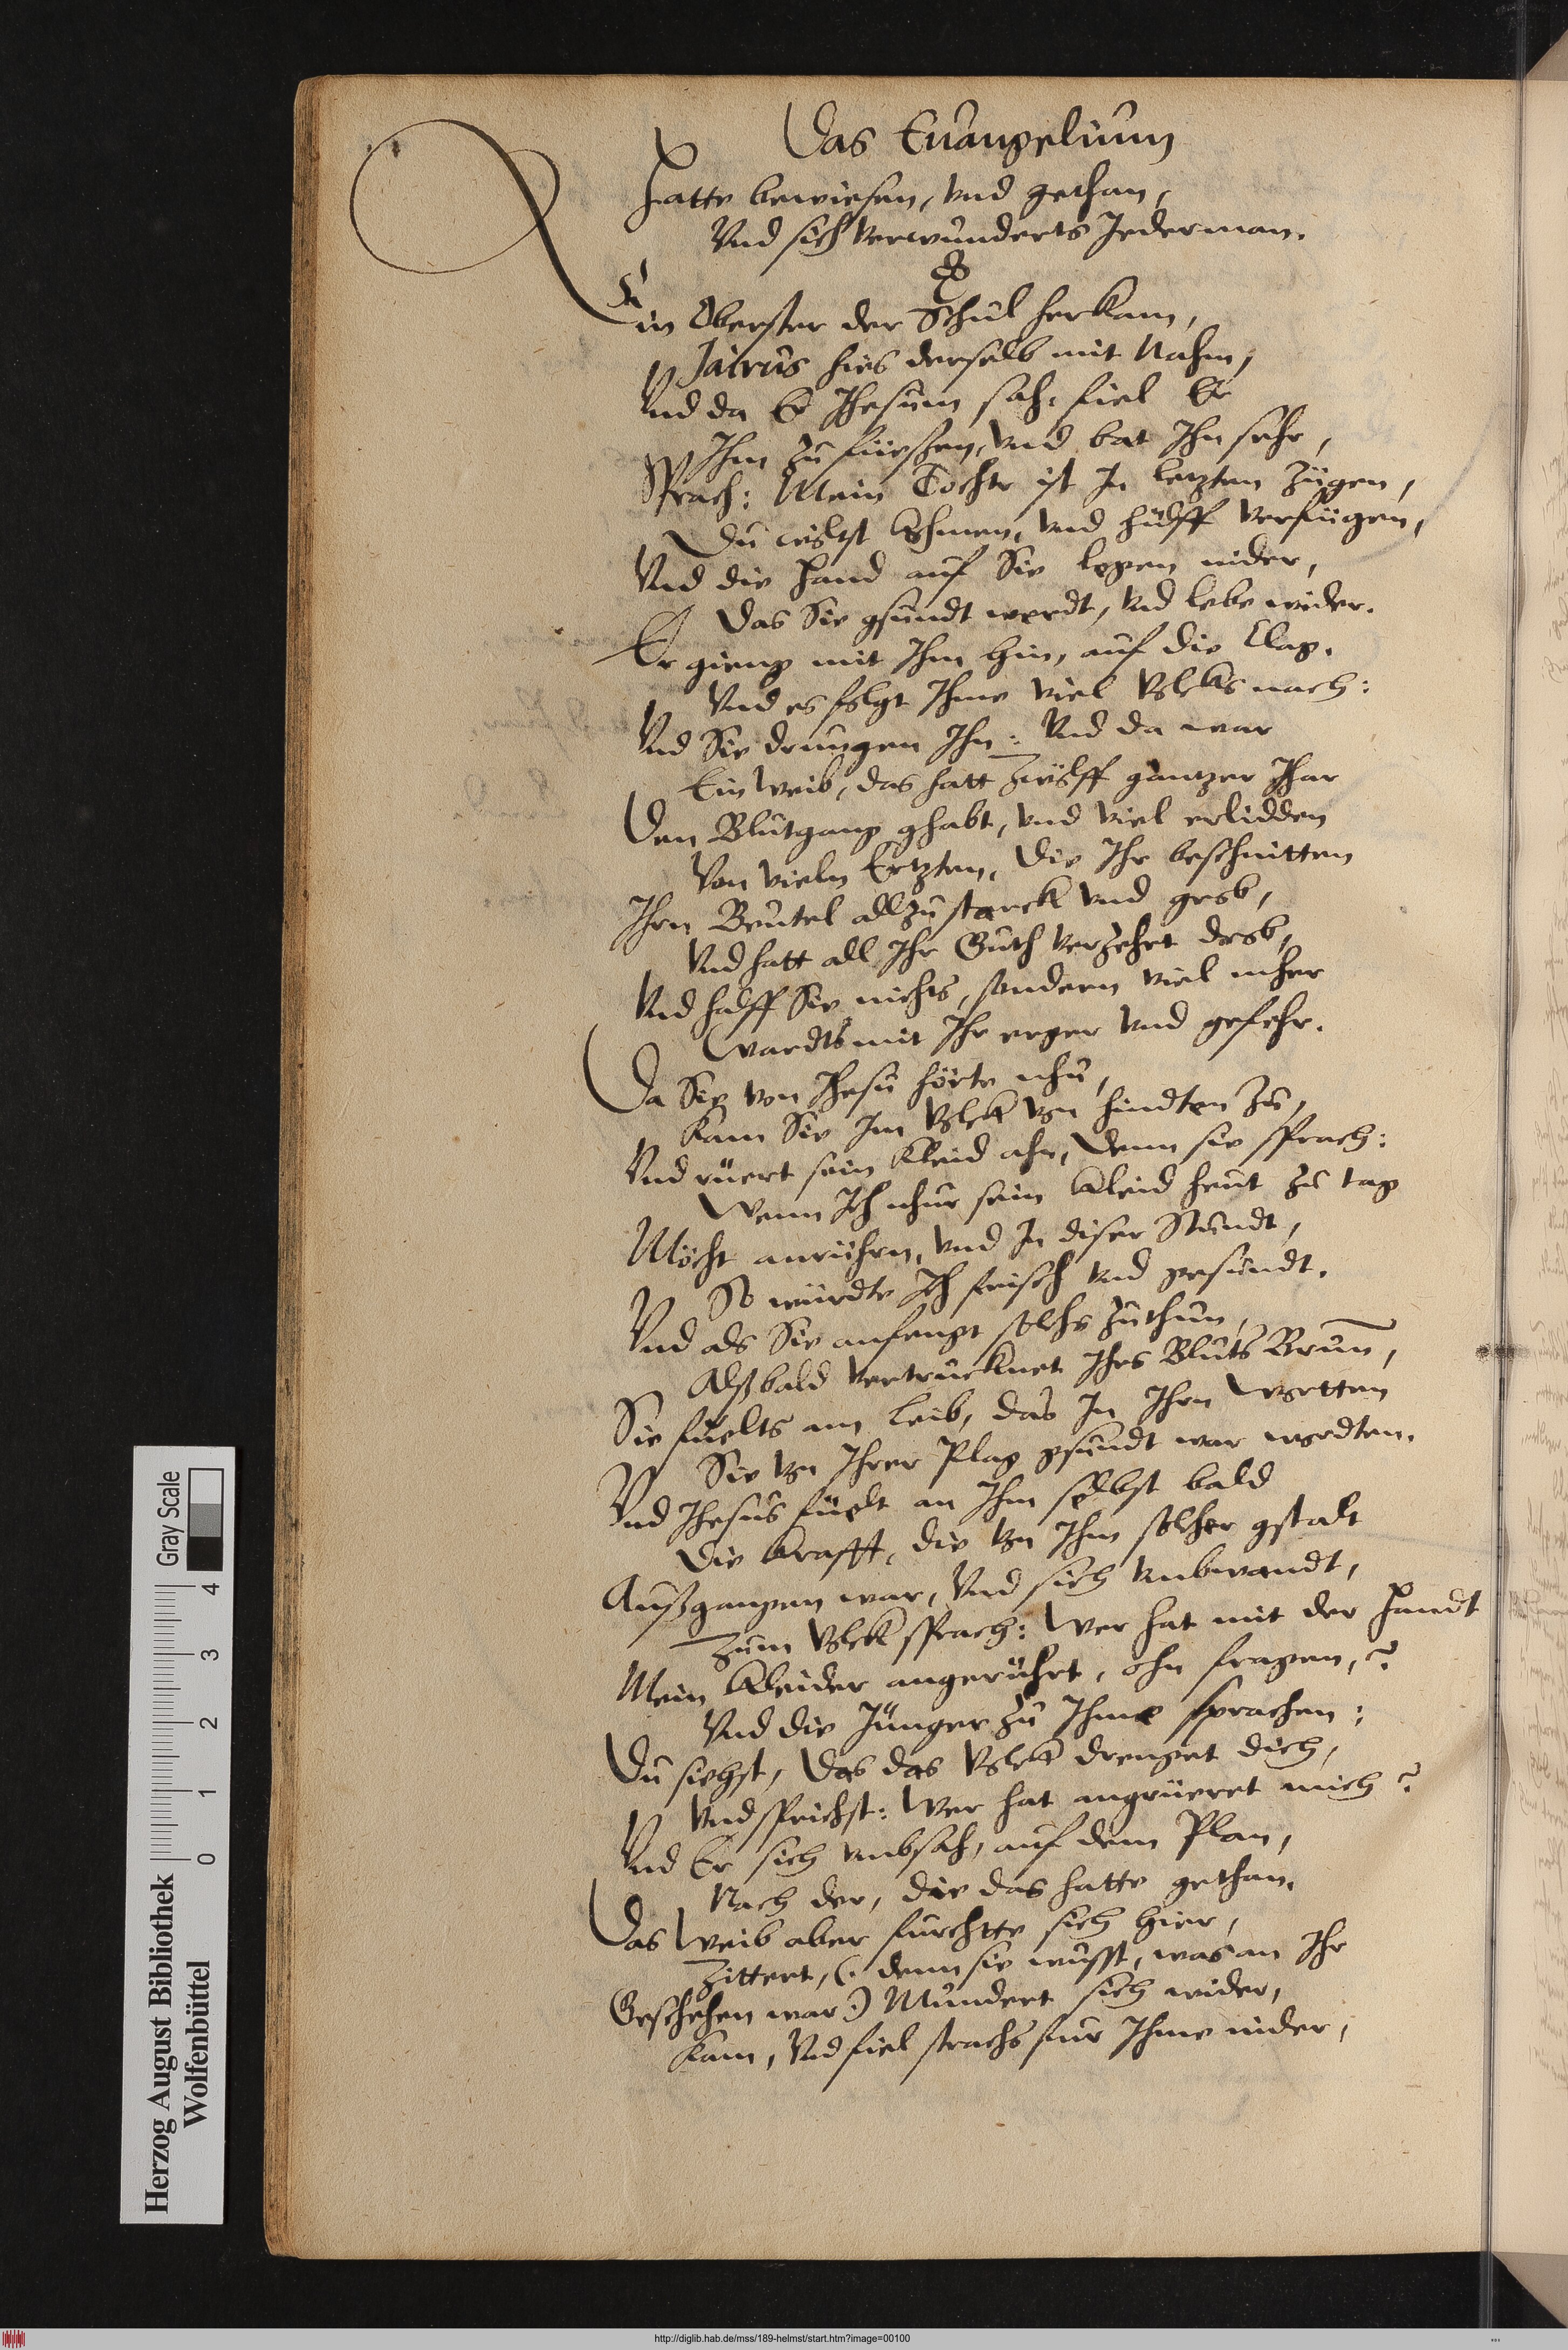 Das Euangelium
Hatte bewiesen, vnd gethan,
Vnd sich verwunderts Jederman.
Ein Oberster der Schul herkam,
Jairus hies derselb mit Nahm,
Vnd da Er Jhesum sah, fiel Er
Jhm zu füeßen, vnd bat Jhn sehr,
Sprach: Mein Tochtr ist In letzten Zügen,
Du wolst kohmen, vnd hülff verfügen,
Vnd die Hand auf Sie legen nider,
Das Sie gsundt werdt, vnd lebe wider.
Er gieng mit Jhm hin, auf die Clag.
Vnd es folgt Jhme viel Volcks nach:
Vnd Sie drungen Jhn: Vnd da war
Ein Weib, das hatt Zwölff gantzer Jhar
Den Blutgang ghabt, vnd viel erlidden
Von vieln Ertzten, Die Jhr beschnitten
Jhrn Beutel allzu starck vnd grob,
Vnd hatt all Jhr Guth verzehrt drob,
Vnd halff Sie nichts, sondern viel mher
Wardts mit Jhr erger vnd gefehr.
Da Sie von Jhesu hörte nhu,
Kam Sie Im Volck von hindten zu,
Vnd rüert sein Kleid ahn, Denn sie sprach:
Wenn Jch nhur sein Kleid heut zu tag
Möcht anrührn, vnd In diser Stundt,
So würdte Jch frisch vnd gesundt.
Vnd als Sie anfengt solchs zuthun,
Alßbald vertrucknet Jhrs Bluts Brun̅,
Sie fuelts am Leib, das In Jhrn Wortten
Sie von Jhrer Plag gsundt war wordten.
Vnd Jhesus füelt an Jhm selbst bald
Die Krafft, die von Jhm solcher gstalt
Außgangen war, Vnd sich vmbwandt,
Zum Volck sprach: Wer hat mit der Handt
Mein Kleider angerührt, ohn fragen,?
Vnd die Jünger zu Jhme sprachen:
Du siehst, Das das Volck drenget dich,
Vnd sprichst: Wer hat angrüeret mich?
Vnd Er sich vmbsah, auf dem Plan,
Nach der, die das hatte gethan.
Das Weib aber furchtte sich hier,
Zittert, (: denn sie wusst, was an Jhr
Geschehen war:) Mundert sich wider,
Kam, Vnd fiel strachs fur Jhme nider,
Herzog August Bibliothek
Wolfenbüttel
Gray Scale
0 1 2 3 4
http://diglib.hab.de/mss/189-helmst/start.htm?image=00100